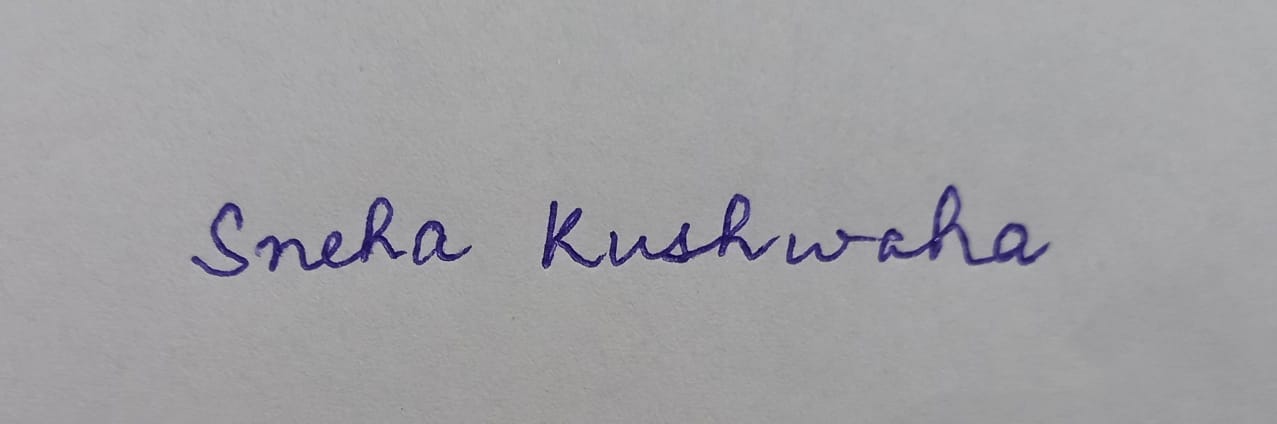 Sneha Kushwaha